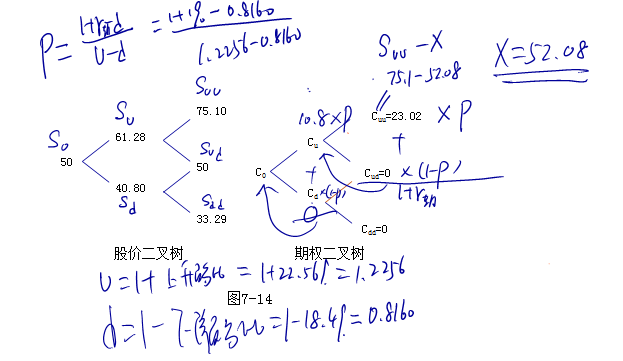 P = 1+r期-d / U-d = 1+1%-0.8160 / 1.2256-0.8160
Suu - X
75.1-52.08
X=52.08
Suu
75.10
Su
61.28
S0
50
Sud
50
40.80
Sd
Sdd
33.29
10.8×P
Cuu=23.02 ×P
Cu
+
C0
+
Cud=0 ×(1-P)
1+r期
Cd ×(1-P)
0
Cdd=0
股价二叉树 期权二叉树
U=1+上升 = 1+22.56% = 1.2256
图7-14
d=1- =1-18.4%=0.8160